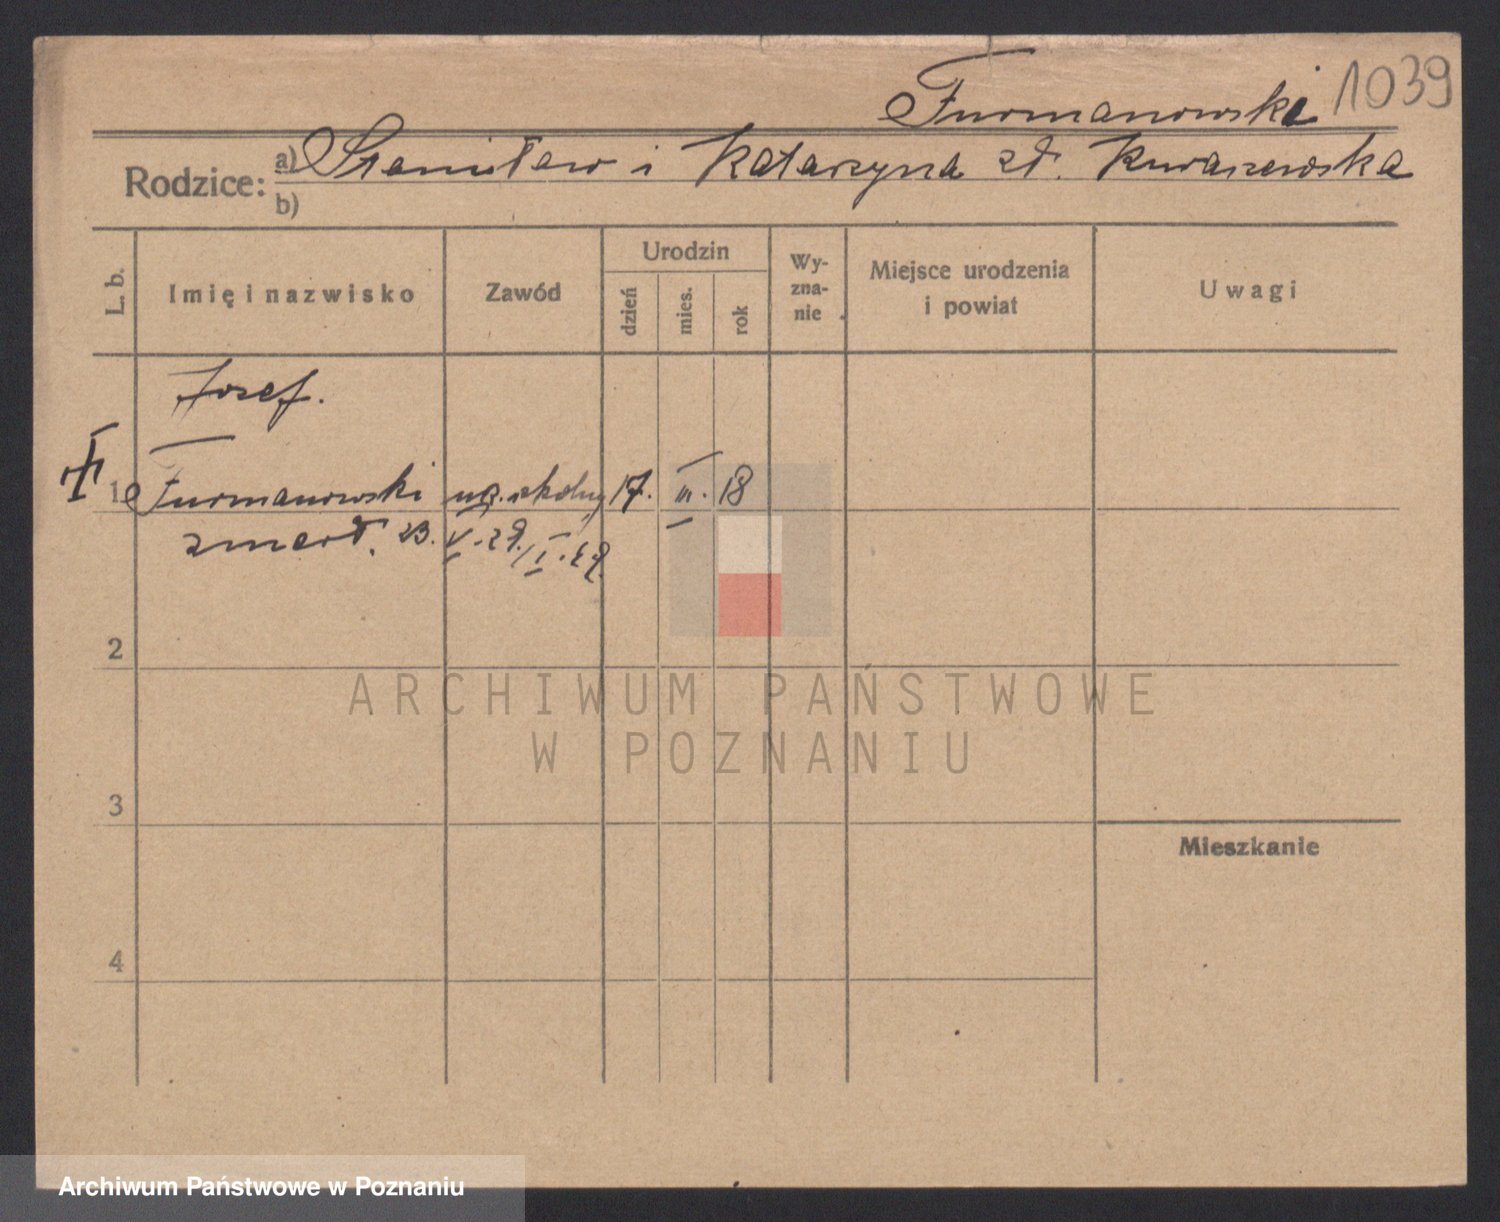 Furmanowski 1039
Rodzice: a) Stanisław i Katarzyna zd. Kwaszewska
b)
L. b. Imię i nazwisko Zawód Urodzin dzień mies. rok Wy-zna-nie Miejsce urodzenia i powiat Uwagi
Josef.
1 Furmanowski szkolny 17. III. 18
zmarł. 23. V. 29.
2
ARCHIWUM PAŃSTWOWE
W POZNANIU
3
Mieszkanie
4
Archiwum Państwowe w Poznaniu